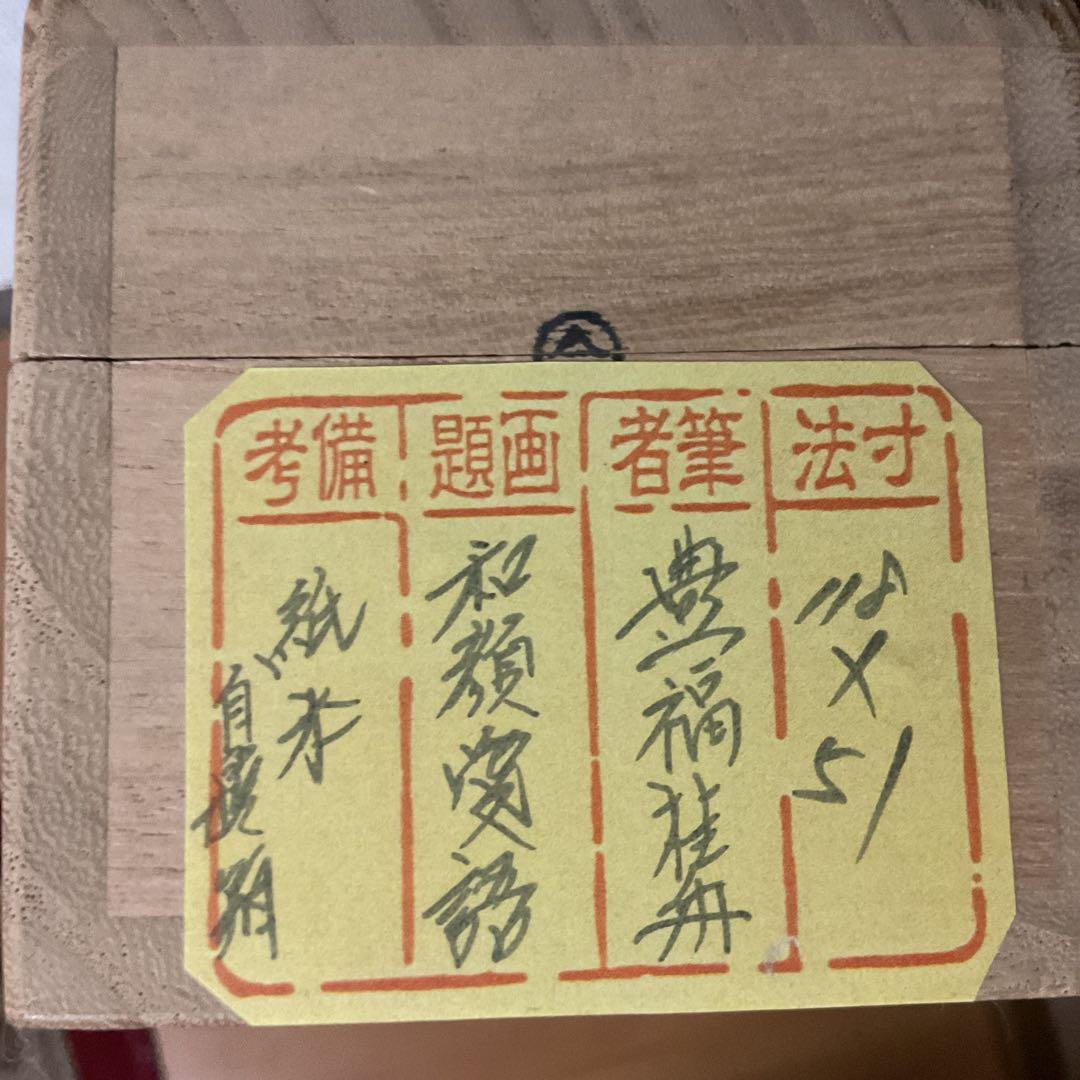 寸法
118
X
51
筆者
豊福桂舟
画題
和顔愛語
備考
紙本
自